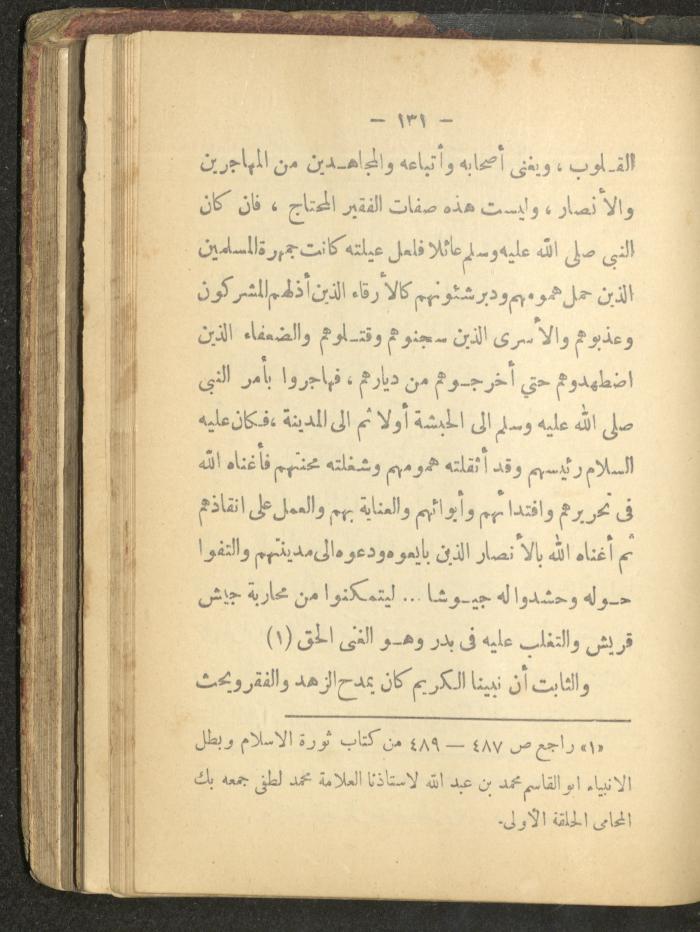 — ١٣١ —
القـلوب ، ويغنى أصحابه وأتباعه والمجاهـدين من المهاجرين
والأنصار ، وليست هذه صفات الفقير المحتاج ، فان كان
النبي صلى الله عليه وسلم عائلا فلعل عيلته كانت جمهرة المسلمين
الذين حمل همومهم ودبر شئونهم كالأرقاء الذين أذلهم المشركون
وعذبوهم والأسرى الذين سجنوهم وقتـلوهم والضعفاء الذين
اضطهدوهم حتي أخرجـوهم من ديارهم ، فهاجروا بأمر النبي
صلى الله عليه وسلم الى الحبشة أولا ثم الى المدينة ،فكان عليه
السلام رئيسهم وقد أثقلته همومهم وشغلته محنتهم فأغناه الله
فى تحريرهم وافتدائهم وأبوائهم والعناية بهم والعمل على انقاذهم
ثم أغناه الله بالأنصار الذين بايعوه ودعوه الى مدينتهم والتفوا
حـوله وحشدوا له جيـوشا ... ليتمكنوا من محاربة جيش
قريش والتغلب عليه فى بدر وهـو الغنى الحق (١)
والثابت أن نبينا الكريم كان يمدح الزهد والفقر ويحث
«١» راجع ص ٤٨٧ — ٤٨٩ من كتاب ثورة الاسلام وبطل
الانبياء ابو القاسم محمد بن عبد الله لاستاذنا العلامة محمد لطفى جمعه بك
المحامى الحلقة الأولى.